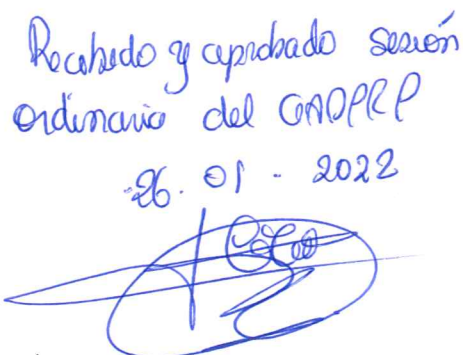 Recibido y aprobado sesión
ordinaria del GADPRP
26. 01 - 2022